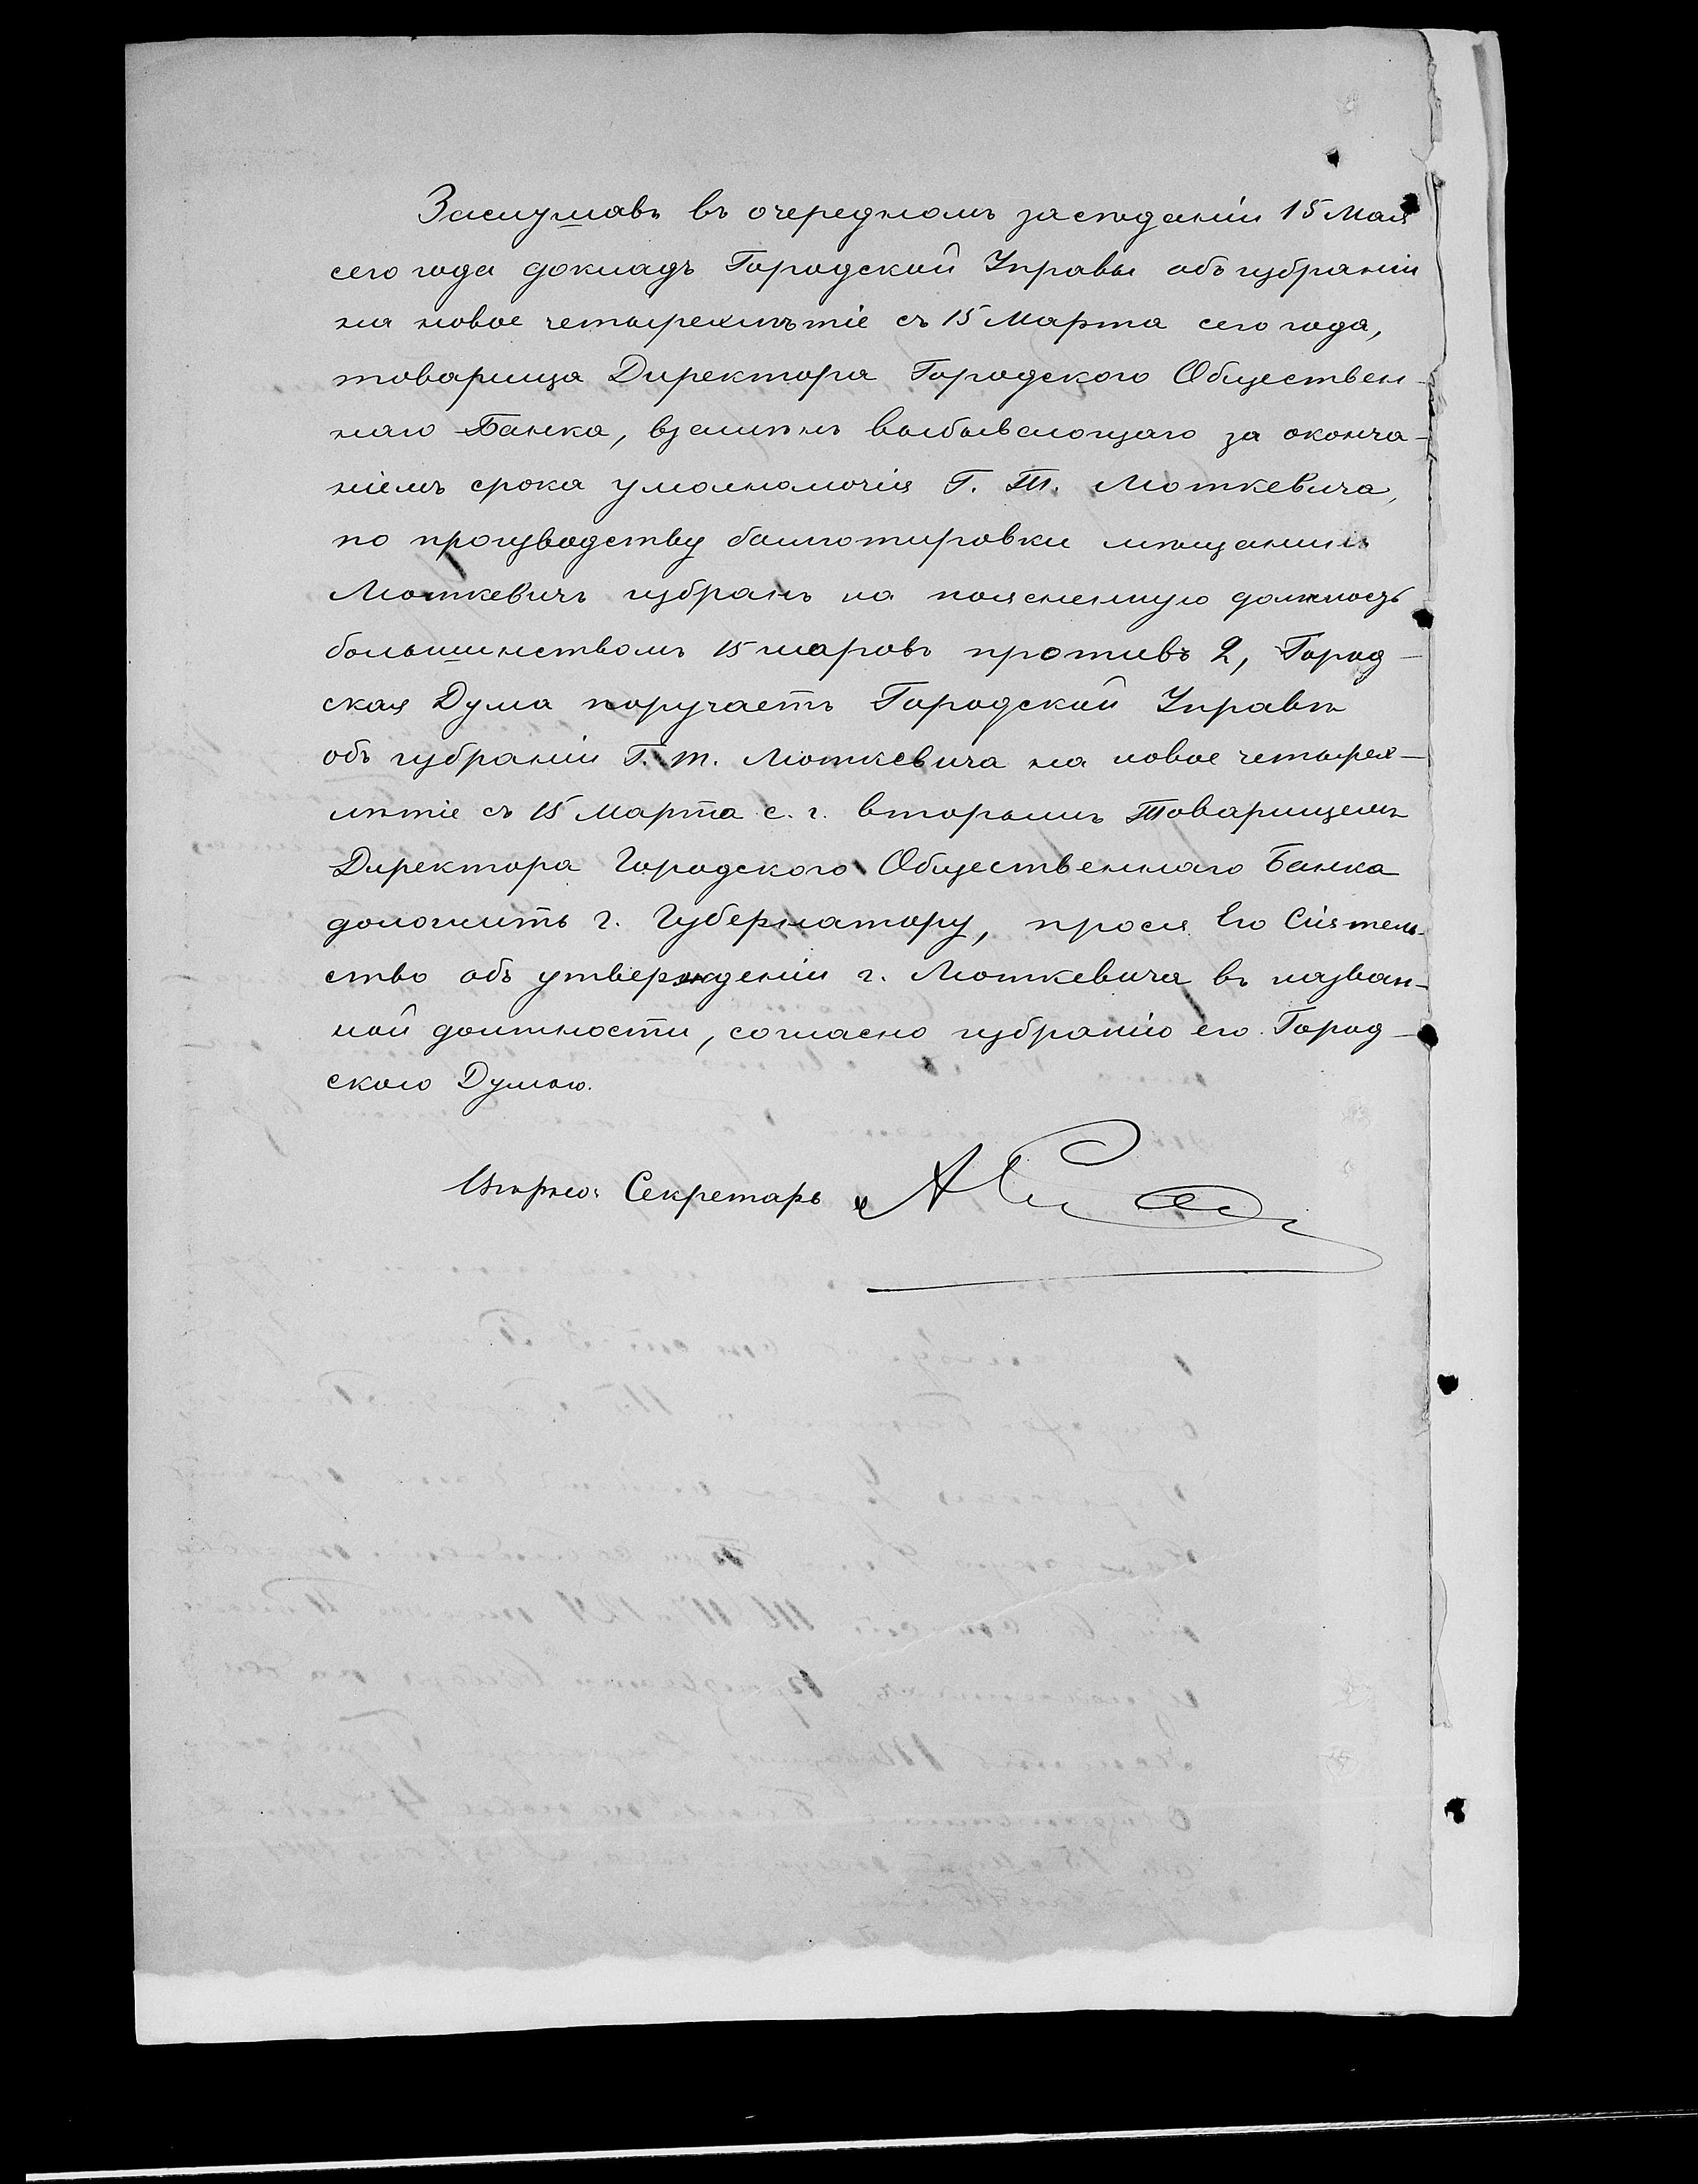 Заслушавъ въ очередномъ засѣданіи 15 Мая
сего года докладъ Городской Управы объ избраніи
на новое четырехлѣтіе съ 15 Марта сего года,
товарища Директора Городского Обществен-
наго Банка, взамѣнъ выбывающаго за оконча-
ніемъ срока уполномочія Г. Т. Моткевича,
по производству баллотировки мѣщанинъ
Моткевичъ избранъ на поясненную должность
большинствомъ 15 шаровъ противъ 2, Город-
ская Дума поручаетъ Городской Управѣ
объ избраніи Г. Т. Моткевича на новое четырех-
лѣтіе съ 15 Марта с. г. вторымъ Товарищемъ
Директора Городского Общественнаго Банка
доложить г. Губернатору, прося Его Сіятель-
ство объ утвержденіи г. Моткевича въ назван-
ной должности, согласно избранію его Город-
ского Думою.
Вѣрно: Секретарь